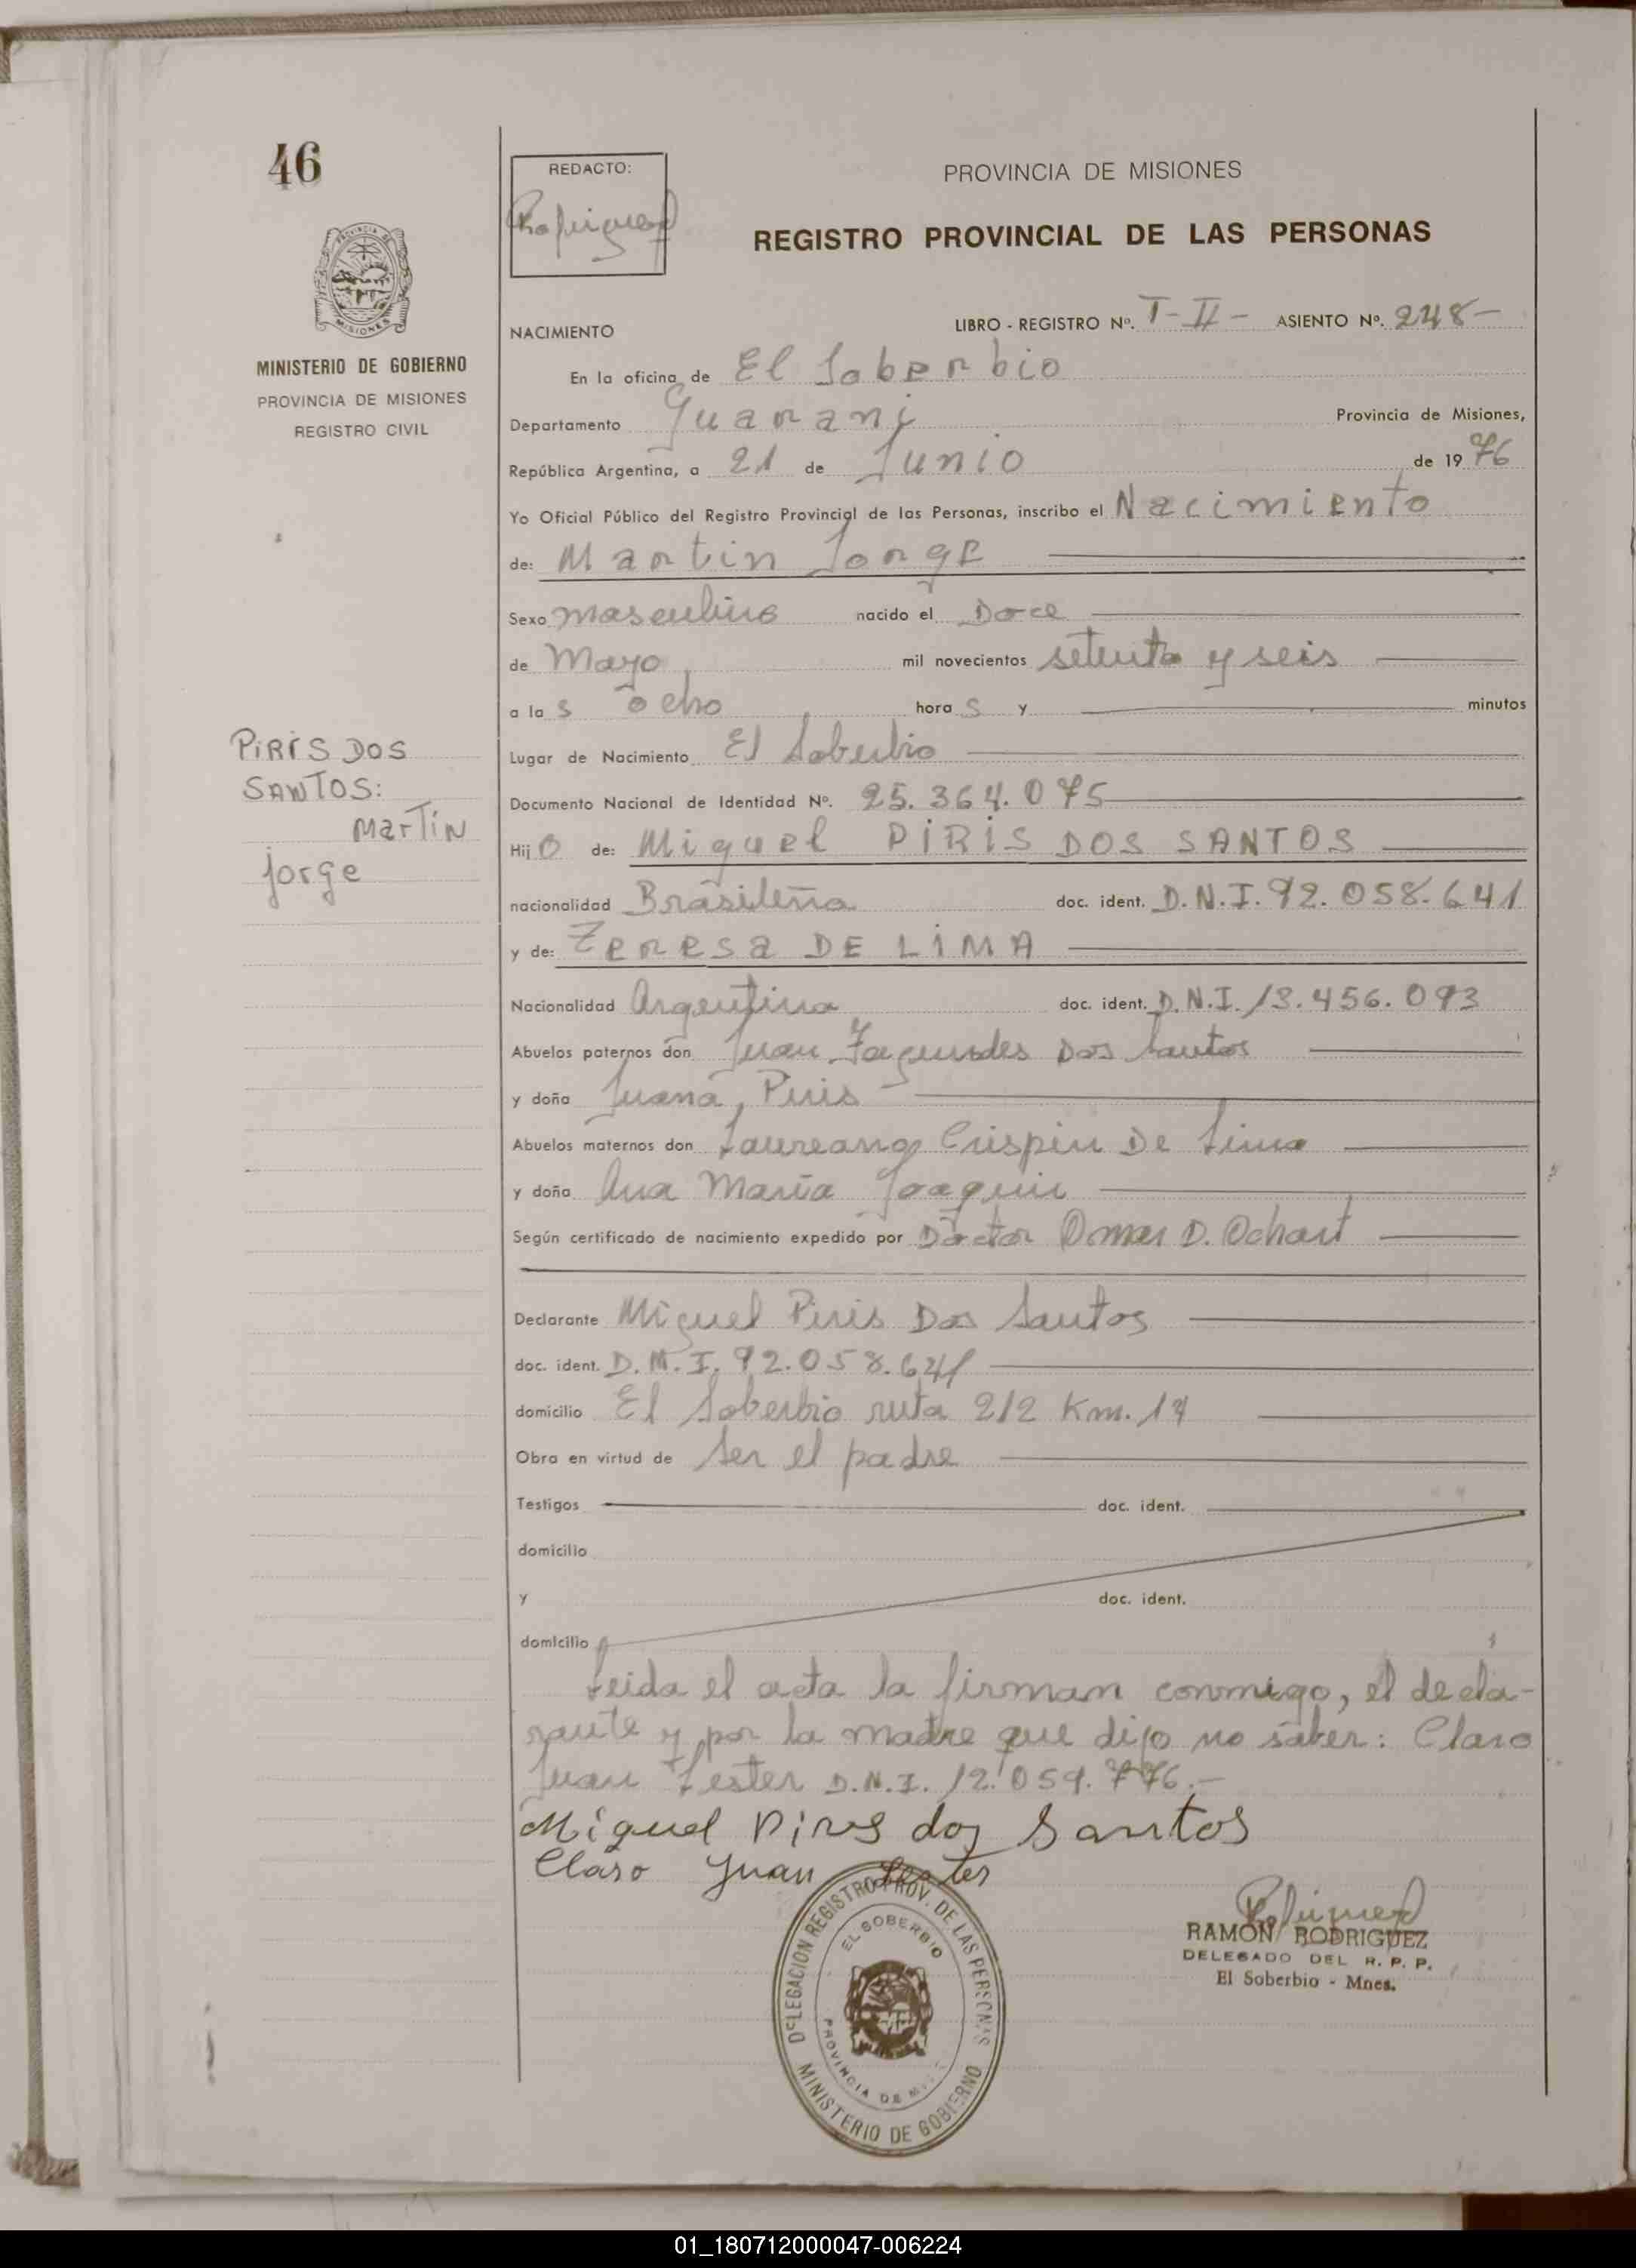 46
REDACTO:
PROVINCIA DE MISIONES
REGISTRO PROVINCIAL DE LAS PERSONAS
PROVINCIA DE
MISIONES
MINISTERIO DE GOBIERNO
PROVINCIA DE MISIONES
REGISTRO CIVIL
NACIMIENTO
LIBRO - REGISTRO Nº. T-II- ASIENTO Nº. 248-
En la oficina de El Soberbio
Departamento Guarani Provincia de Misiones,
República Argentina, a 21 de Junio de 1976
Yo Oficial Público del Registro Provincial de las Personas, inscribo el Nacimiento
de: Martin Jorge
Sexo masculino nacido el Doce
de Mayo mil novecientos setenta y seis
a las ocho horas y minutos
PIRIS DOS
SANTOS:
Martin
jorge
Lugar de Nacimiento El Soberbio
Documento Nacional de Identidad Nº. 25.364.075
Hijo de: Miguel PIRIS DOS SANTOS
nacionalidad Brasileña doc. ident. D.N.I. 92.058.641
y de: Teresa DE LIMA
Nacionalidad Argentina doc. ident. D.N.I. 13.456.093
Abuelos paternos don Juan Fagundes Dos Santos
y doña Juana Piris
Abuelos maternos don Laureano Crispin De Lima
y doña Ana Maria Joaquin
Según certificado de nacimiento expedido por Doctor Omar D. Ochart
Declarante Miguel Piris Dos Santos
doc. ident. D.N.I. 92.058.641
domicilio El Soberbio ruta 212 Km. 14
Obra en virtud de ser el padre
Testigos doc. ident.
domicilio
y doc. ident.
domicilio
Leida el acta la firman conmigo, el decla-
rante y por la madre que dijo no saber: Claro
Juan Lester D.N.I. 12.059.776.-
Miguel Piris dos Santos
Claro Juan Lester
DELEGACION REGISTRO PROV. DE LAS PERSONAS
EL SOBERBIO
PROVINCIA DE
MINISTERIO DE GOBIERNO
RAMON RODRIGUEZ
DELEGADO DEL R. P. P.
El Soberbio - Mnes.
01_180712000047-006224